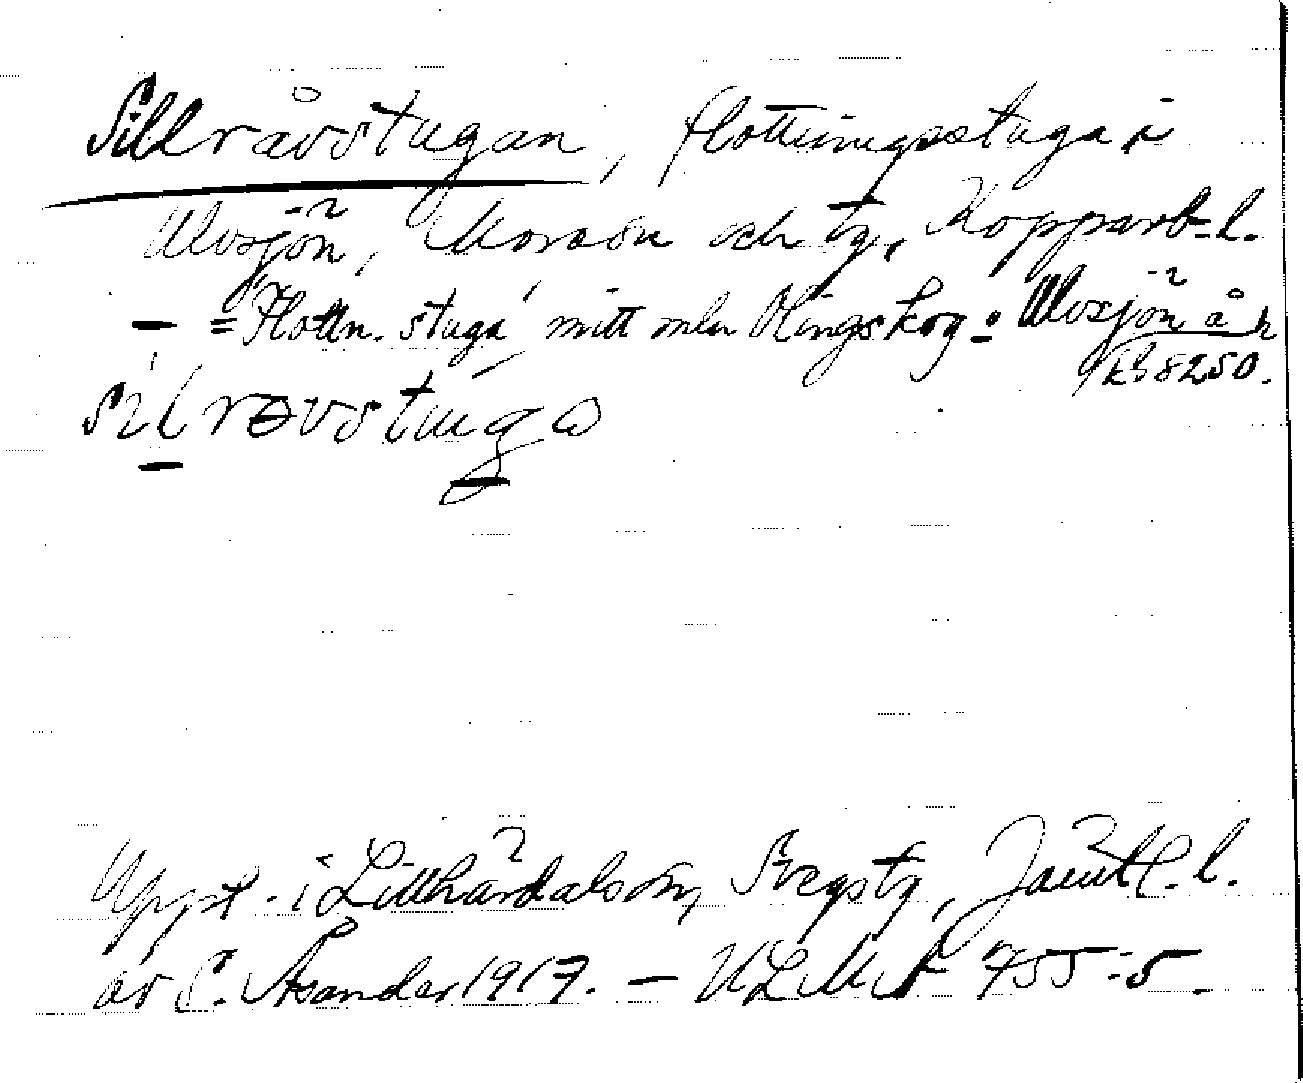 Sillråvstugan, flottningsstuga i
Ulvsjön, Mora sn och tg, Kopparb. l.
– = 'Flottn. stuga' mitt mln Olingskog o Ulvsjön å
kb 8250.
silrəvstuga
Uppt. i Lillhärdals sn, Svegs tg, Jämtl. l.
av C. Asander 1917. – ULMA 755:5.